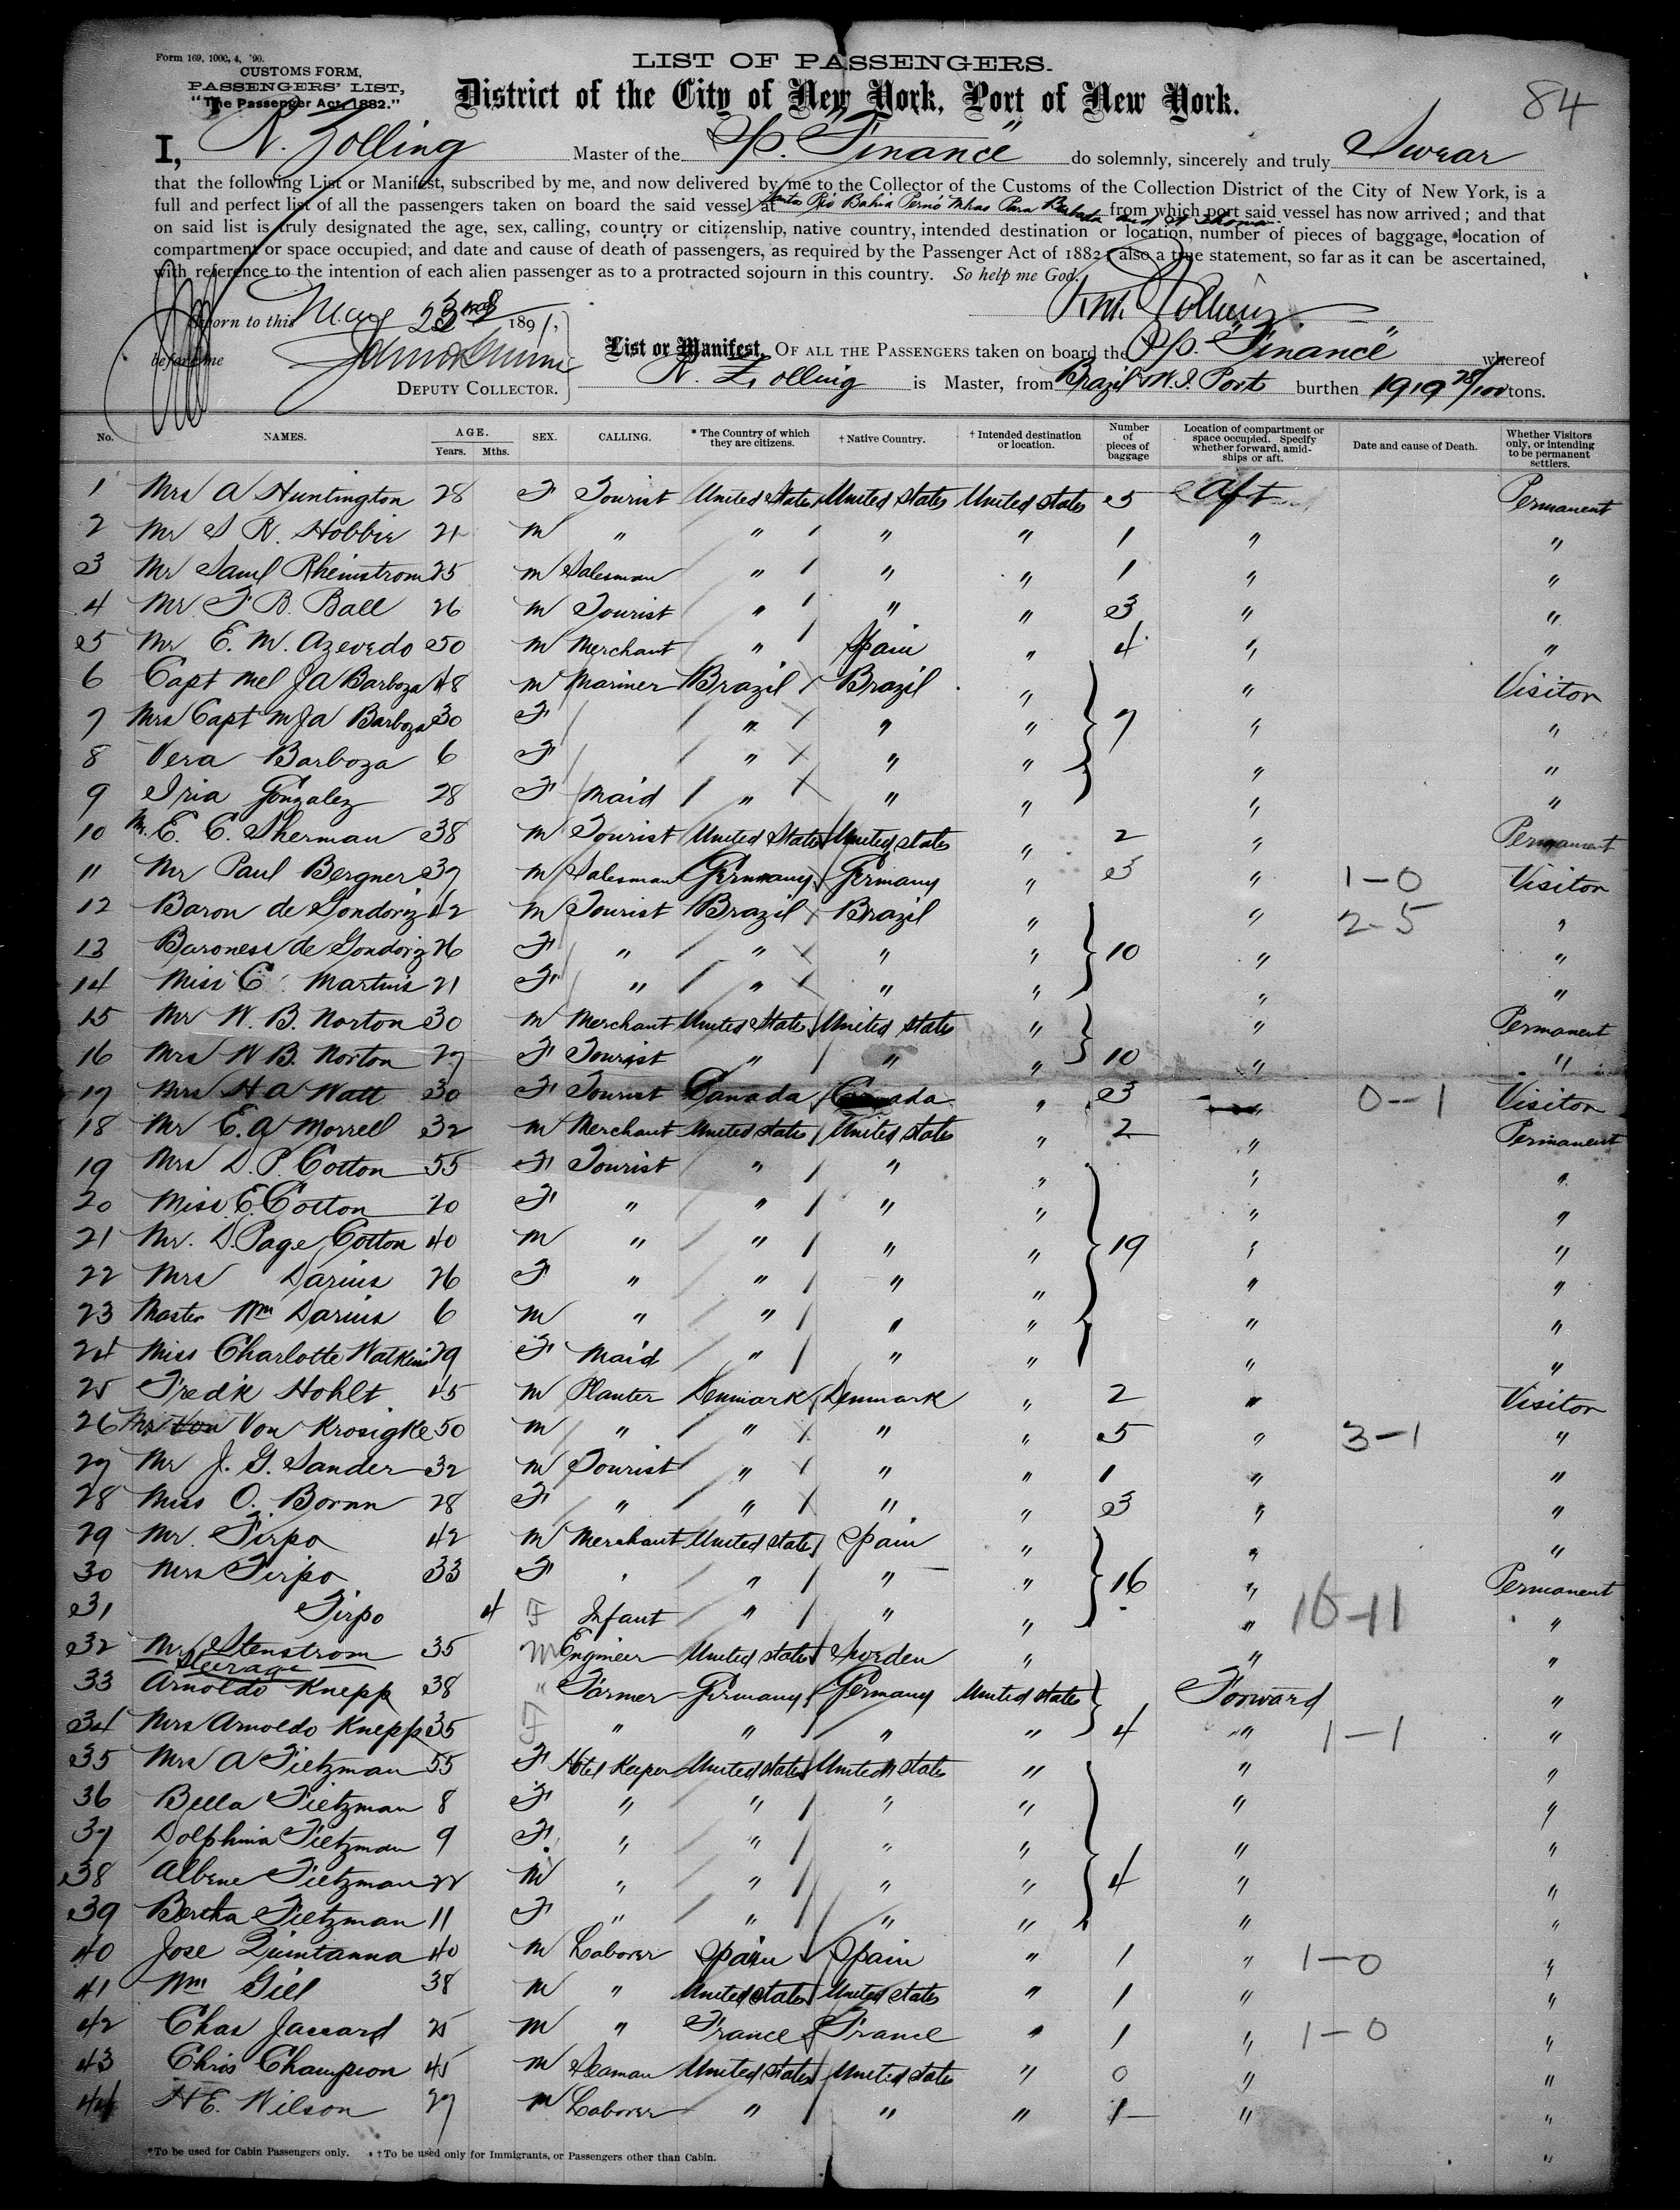 Form 169, 1000, 4, '90.
CUSTOMS FORM,
PASSENGERS' LIST,
"The Passenger Act, 1882."
LIST OF PASSENGERS.
District of the City of New York, Port of New York.
84
I, N. Zolling Master of the S/S. "Finance" do solemnly, sincerely and truly Swear
that the following List or Manifest, subscribed by me, and now delivered by me to the Collector of the Customs of the Collection District of the City of New York, is a
full and perfect list of all the passengers taken on board the said vessel at Santos Rio Bahia Perno Mhas Para Barbados and St Thomas from which port said vessel has now arrived; and that
on said list is truly designated the age, sex, calling, country or citizenship, native country, intended destination or location, number of pieces of baggage, location of
compartment or space occupied, and date and cause of death of passengers, as required by the Passenger Act of 1882; also a true statement, so far as it can be ascertained,
with reference to the intention of each alien passenger as to a protracted sojourn in this country. So help me God.
Sworn to this May 23rd 1891,
before me
DEPUTY COLLECTOR.
List or Manifest, OF ALL THE PASSENGERS taken on board the S/S. "Finance" whereof
N. Zolling is Master, from Brazil & W. I. Ports burthen 1919 78/100 tons.
No. NAMES. AGE. Years. Mths. SEX. CALLING. * The Country of which they are citizens. † Native Country. † Intended destination or location. Number of pieces of baggage Location of compartment or space occupied. Specify whether forward, amidships or aft. Date and cause of Death. Whether Visitors only, or intending to be permanent settlers.
1 Mrs A Huntington 28 F Tourist United States United States United States 5 Aft Permanent
2 Mr S R. Hobbie 21 M " " " " 1 " "
3 Mr Saml Rheinstrom 25 M Salesman " " " 1 " "
4 Mr F B. Ball 26 M Tourist " " " 3 " "
5 Mr E. M. Azevedo 50 M Merchant " Spain " 4 " "
6 Capt Mel J A Barboza 48 M Mariner Brazil Brazil " " Visitor
7 Mrs Capt M J A Barboza 30 F " " " 7 " "
8 Vera Barboza 6 F " " " " "
9 Iria Gonzalez 28 F Maid " " " " "
10 Mr. E. C. Sherman 38 M Tourist United States United States " 2 " Permanent
11 Mr Paul Bergner 37 M Salesman Germany Germany " 3 " 1-0 Visitor
12 Baron de Gondoriz 42 M Tourist Brazil Brazil " " 2-5 "
13 Baroness de Gondoriz 26 F " " " " 10 " "
14 Miss C. Martins 21 F " " " " " "
15 Mr W. B. Norton 30 M Merchant United States United States " " Permanent
16 Mrs W B. Norton 27 F Tourist " " " 10 " "
17 Mrs H A Watt 30 F Tourist Canada Canada " 3 " 0-1 Visitor
18 Mr E. A Morrell 32 M Merchant United States United States " 2 " Permanent
19 Mrs D. P. Cotton 55 F Tourist " " " " "
20 Miss E. Cotton 20 F " " " " " "
21 Mr. D. Page Cotton 40 M " " " " 19 " "
22 Mrs Darius 26 F " " " " " "
23 Master Wm Darius 6 M " " " " " "
24 Miss Charlotte Watkins 29 F Maid " " " " "
25 Fredk Hohlt 45 M Planter Denmark Denmark " 2 " Visitor
26 Mr Von Von Krosigke 50 M " " " " 5 " 3-1 "
27 Mr J. G. Sander 32 M Tourist " " " 1 " "
28 Miss O. Bornn 28 F " " " " 3 " "
29 Mr. Firpo 42 M Merchant United States Spain " " "
30 Mrs Firpo 33 F " " " 16 " Permanent
31 Firpo 4 F Infant " " " " 16-11 "
32 Mr Stenstrom 35 M Engineer United States Sweden " " "
Steerage
33 Arnoldo Knepp 38 " Farmer Germany Germany United States Forward "
34 Mrs Arnoldo Knepp 35 F " " " " 4 " 1-1 "
35 Mrs A Tietzman 55 F Hotel Keeper United States United States " " "
36 Bella Tietzman 8 F " " " " " "
37 Dolphina Tietzman 9 F. " " " " " "
38 Albene Tietzman 22 M " " " " 4 " "
39 Bertha Tietzman 11 F " " " " " "
40 Jose Quintanna 40 M Laborer Spain Spain " 1 " 1-0 "
41 Wm Gill 38 M " United States United States " 1 " "
42 Chas Jaccard 25 M " France France " 1 " 1-0 "
43 Chris Champion 45 M Seaman United States United States " 0 " "
44 H E. Wilson 27 M Laborer " " " 1 " "
"
*To be used for Cabin Passengers only. †To be used only for Immigrants, or Passengers other than Cabin.